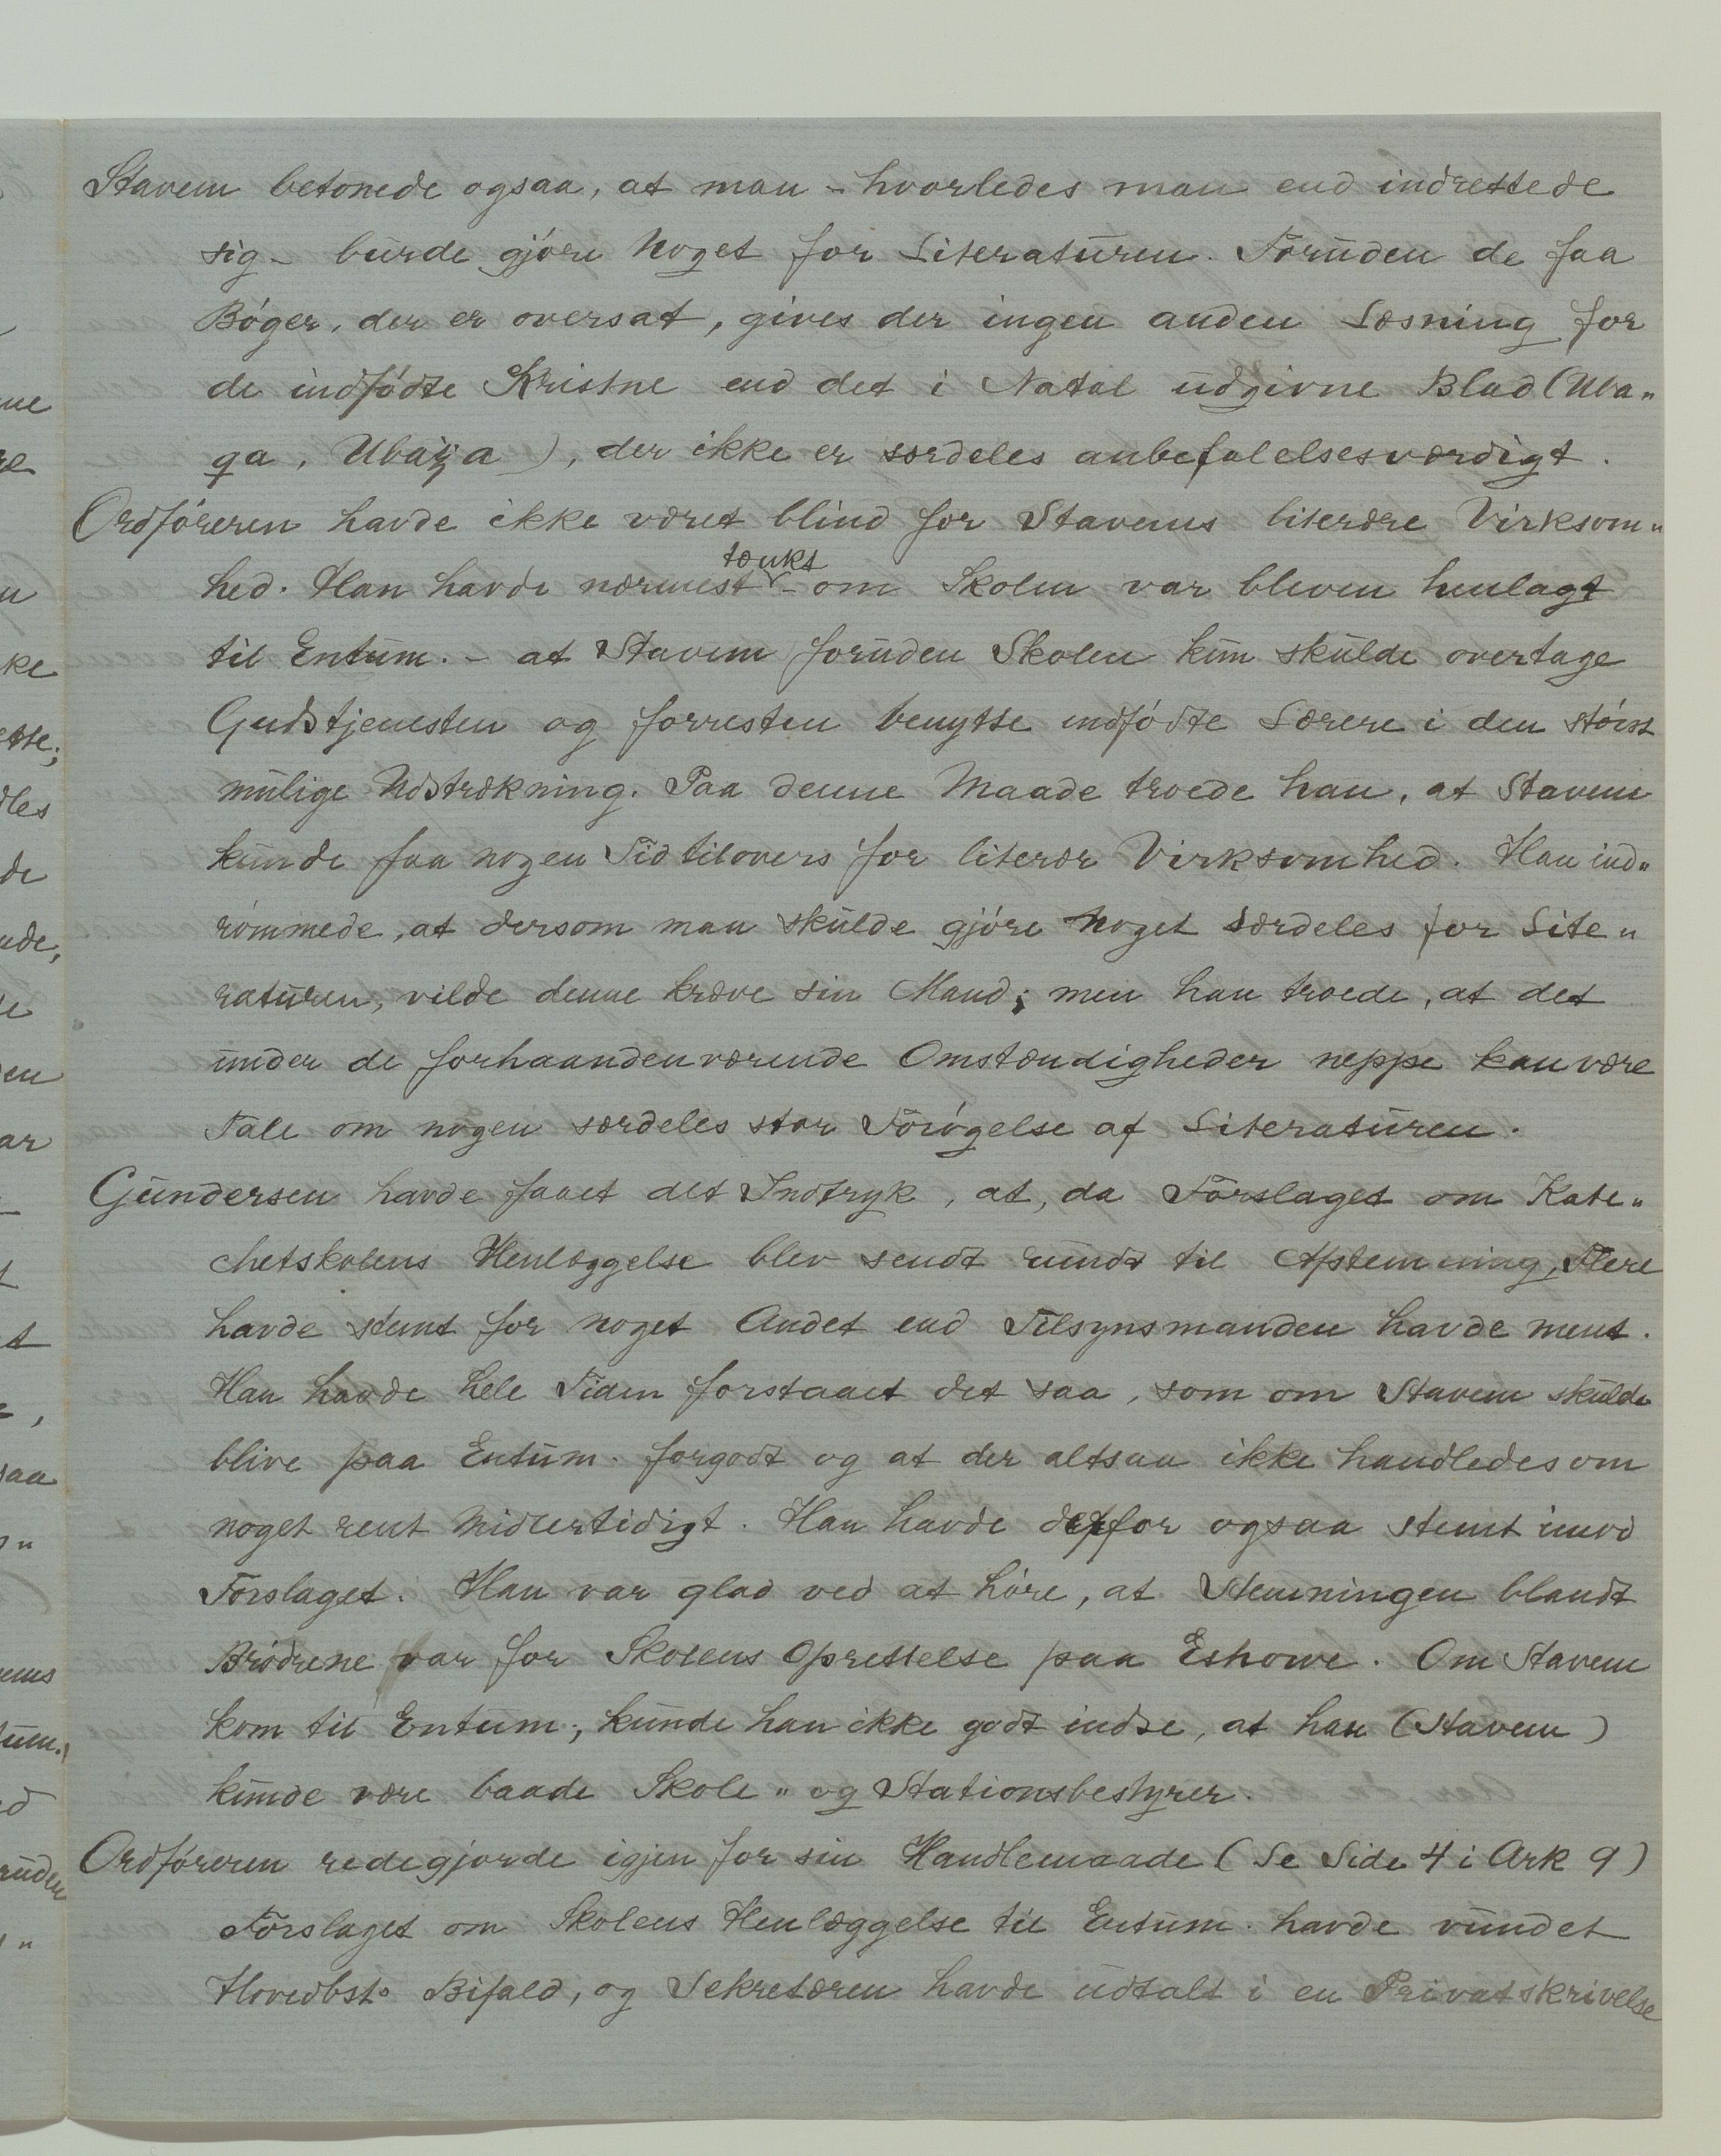 Stavem betonede ogsaa, at man - hvorledes man end indrettede
sig - burde gjöre Noget for Literaturen. Foruden de faa
Böger, der er oversat, gives der ingen anden Læsning for
de indfödte Kristne end det i Natal udgivne Blad (Uba„
qa, Ubaqa), der ikke er særdeles anbefalelsesværdigt.
Ordföreren havde ikke været blind for Stavems literære Virksom„
tænkt
hed. Han havde nærmest - om Skolen var bleven henlagt
til Entum. - at Stavem foruden Skolen kun skulde overtage
Gudstjenesten og forresten benytte indfödte Lærere i den störst
mulige Udstrækning. Paa denne Maade troede han, at Stavem
kunde faa nogen Tid tilovers for literær Virksomhed. Han ind„
römmede, at dersom man skulde gjöre Noget særdeles for Lite„
raturen, vilde denne kræve sin Mand; men han troede, at det
under de forhaandenværende Omstændigheder neppe kan være
Tale om nogen særdeles stor Forögelse af Literaturen.
Gundersen havde faaet det Indtryk, at, da Forslaget om Kate„
chetskolens Henlæggelse blev sendt rundt til Afstemning, Flere
havde stemt for noget Andet end Tilsynsmanden havde ment.
Han havde hele Tiden forstaaet det saa, som om Stavem skulde
blive paa Entum. forgodt og at der altsaa ikke handledes om
noget rent Midlertidigt. Han havde derfor ogsaa stemt imod
Forslaget. Han var glad ved at höre, at Stemningen blandt
Brödrene var for Skolens Oprettelse paa Eshowe. Om Stavem
kom til Entum., kunde han ikke godt indse, at han (Stavem)
kunde være baade Skole„ og Stationsbestyrer.
Ordföreren redegjorde igjen for sin Handlemaade (Se Side 4 i Ark 9)
Forslaget om Skolens Henlæggelse til Entum. havde vundet
Hovedbst. Bifald, og Sekretæren havde udtalt i en Privatskrivelse